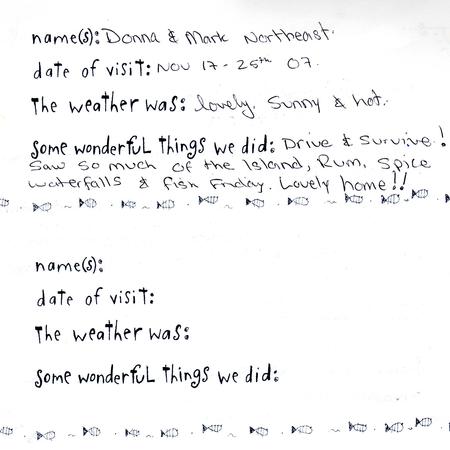 name(s): Donna & Mark Northeast.
date of visit: Nov 17 - 25th 07.
The weather was: lovely. Sunny & hot.
Some wonderful things we did: Drive & Survive!
Saw so much of the Island, Rum, Spice
waterfalls & fish Friday. Lovely home!!
name(s):
date of visit:
The weather was:
Some wonderful things we did: